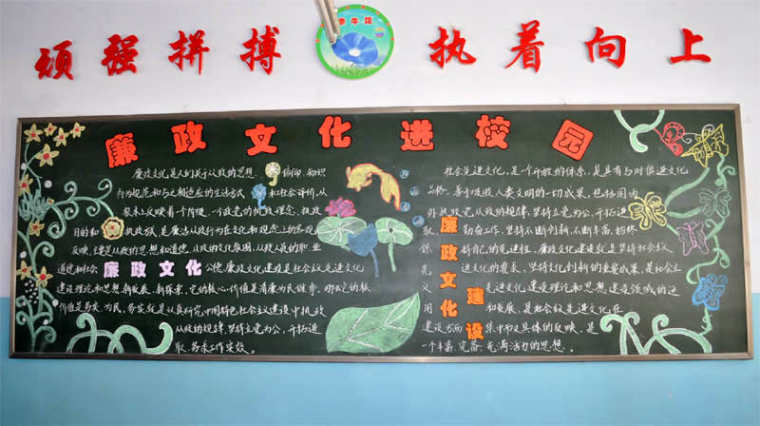 顽强拼搏
牵牛花
执着向上
廉政文化进校园
廉政文化是人们关于从政的思想、信仰、知识
行为规范和与之相适应的生活方式和社会评价,从
根本上反映着一个阶级、一个政党的执政理念、执政
目的和执政方式,是廉洁从政行为在文化和观念上的客观
反映,主要是从政的思想和道德、从政的文化氛围、从政人员的职业
道德和社会
廉政文化
公德。廉政文化建设是社会主义先进文化
建设理论和思想新发展、新探索,它的核心价值是清廉为民健康
价值是务实、为民,务实就是认真研究中国特色社会主义建设中执政
从政的规律,坚持立党为公、开拓进
取、务求工作实效。
社会先进文化,是一个开放的体系,是具有与时俱进文化
品格、善于吸收人类文明的一切成果,包括国内
外执政党从政的规律,坚持立党为公、开拓进
取勤奋工作,坚持不断创新、不断丰富、始终
保
自己的先进性。廉政文化建设就是坚持社会主
义先进文化的要求,坚持文化创新的重要成果,是社会主
义先进文化建设理论和思想建设领域的运
用和发展,是社会主义先进文化在
建设方面
集中而又具体的反映,是
一个丰富、完备、充满活力的思想。
廉政文化
建设